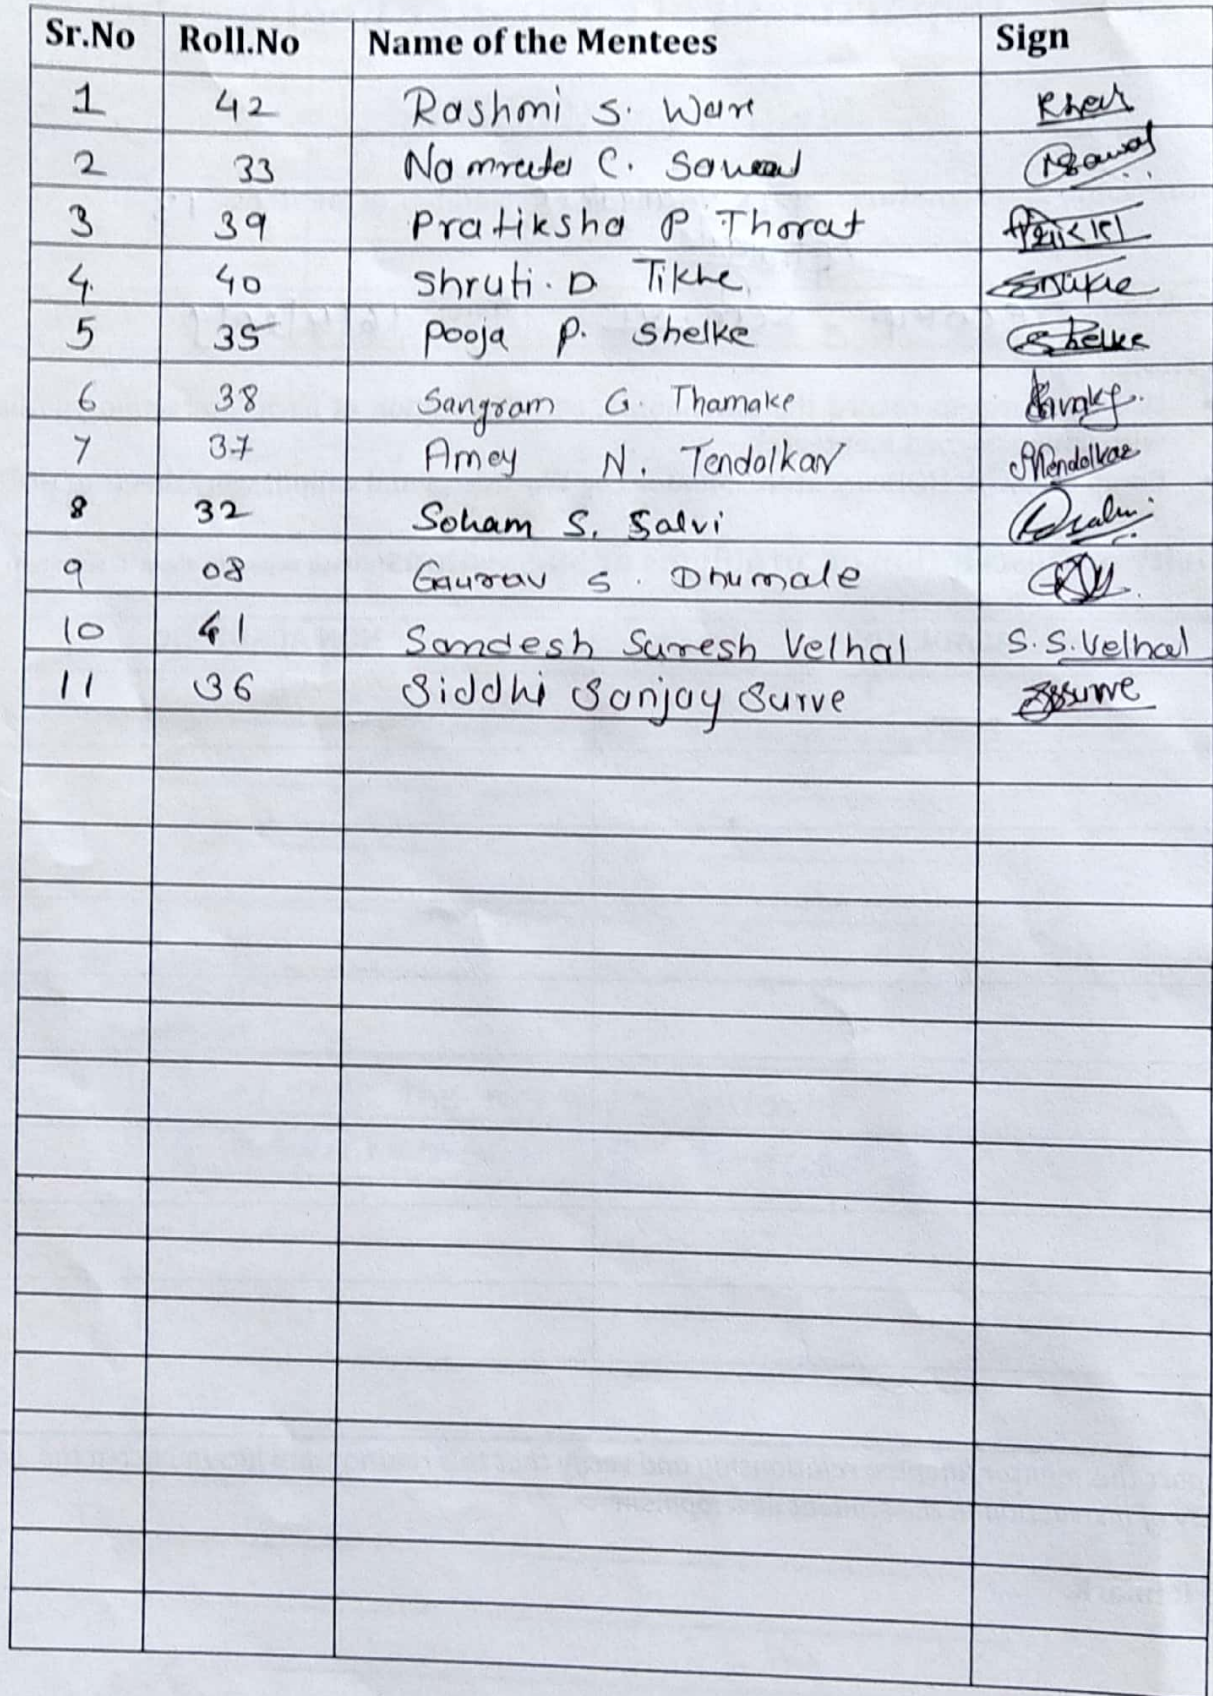 Sr.No Roll.No Name of the Mentees Sign
1 42 Rashmi S. Ware
2 33 Namrata C. Sawant
3 39 Pratiksha P Thorat
4. 40 Shruti. D Tikhe
5 35 Pooja P. Shelke Shelke
6 38 Sangram G. Thamake
7 37 Amey N. Tendolkar Tendolkar
8 32 Soham S. Salvi
9 08 Gaurav S. Dhumale
10 41 Sandesh Suresh Velhal S.S.Velhal
11 36 Siddhi Sanjay Surve SSSurve